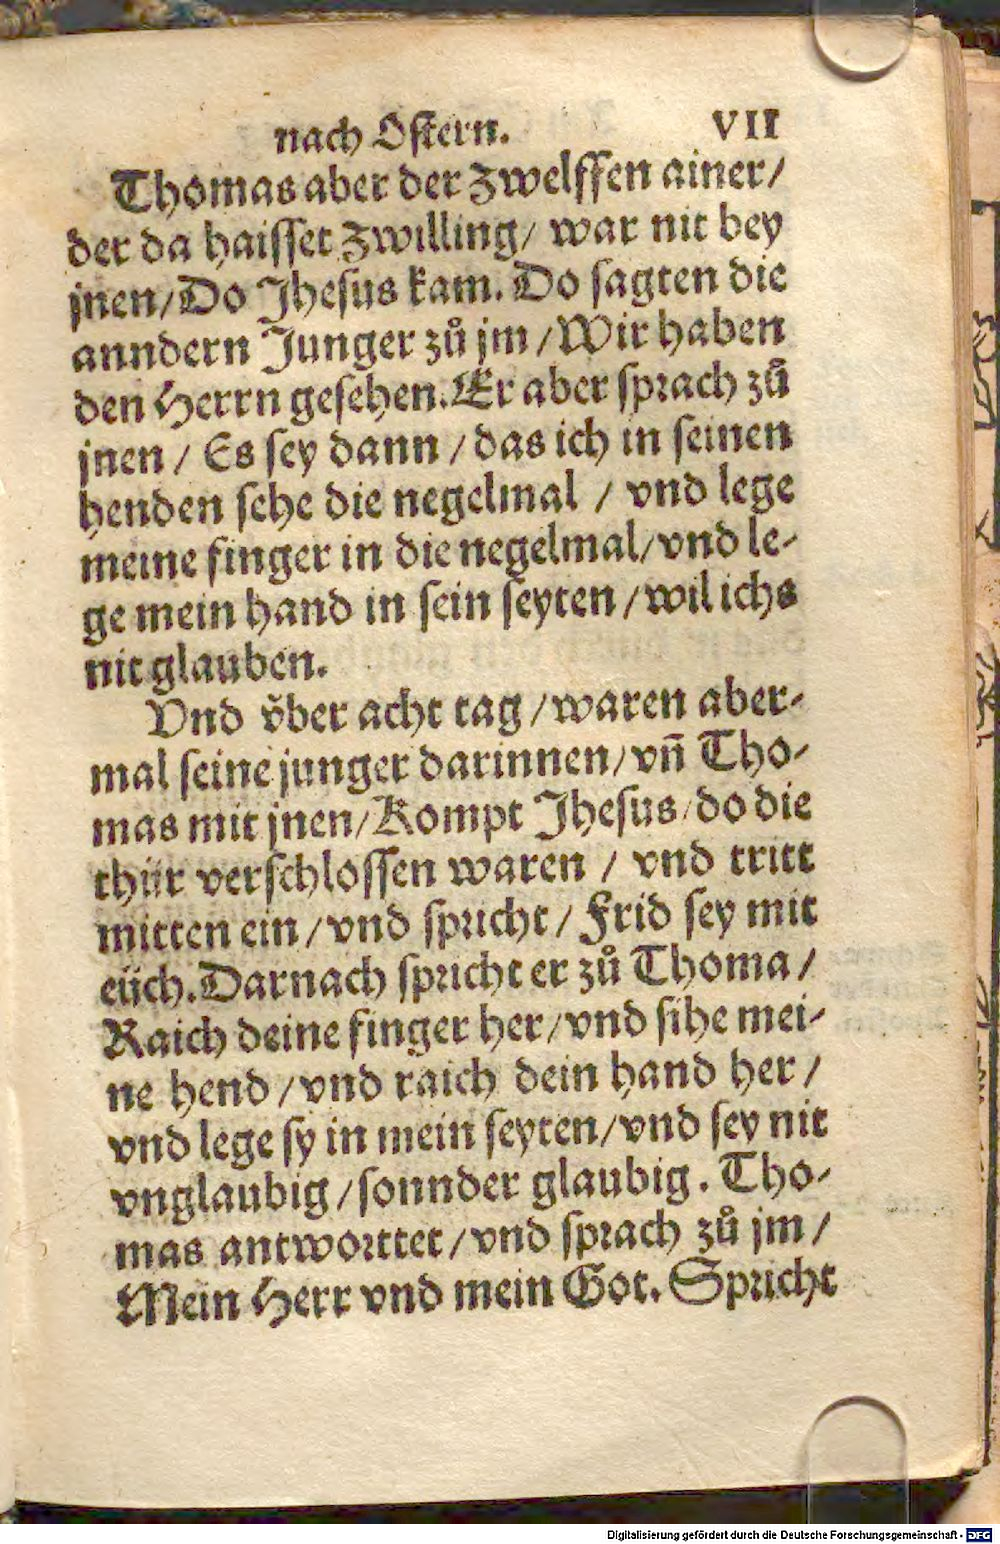 nach Oſtern. VII
Thomas aber der Zwelffen ainer/
der da haiſſet Zwilling/ war nit bey
jnen/Do Jheſus kam. Do ſagten die
anndern Junger zů jm /Wir haben
den Herrn geſehen.Er aber ſprach zů
jnen / Es ſey dann / das ich in ſeinen
henden ſehe die negelmal / vnd lege
meine finger in die negelmal/vnd le-
ge mein hand in ſein ſeyten /wil ichs
nit glauben.
Vnd v̌ber acht tag /waren aber-
mal ſeine junger darinnen/vn̄ Tho-
mas mit jnen/Kompt Jheſus/do die
thür verſchloſſen waren / vnd tritt
mitten ein /vnd ſpricht / Frid ſey mit
eüch.Darnach ſpricht er zů Thoma /
Raich deine finger her/vnd ſihe mei-
ne hend /vnd raich dein hand her /
vnd lege ſy in mein ſeyten/vnd ſey nit
vnglaubig /ſonnder glaubig. Tho-
mas antworttet /vnd ſprach zů jm /
Mein Herr vnd mein Got. Spricht
Digitalisierung gefördert durch die Deutsche Forschungsgemeinschaft - DFG